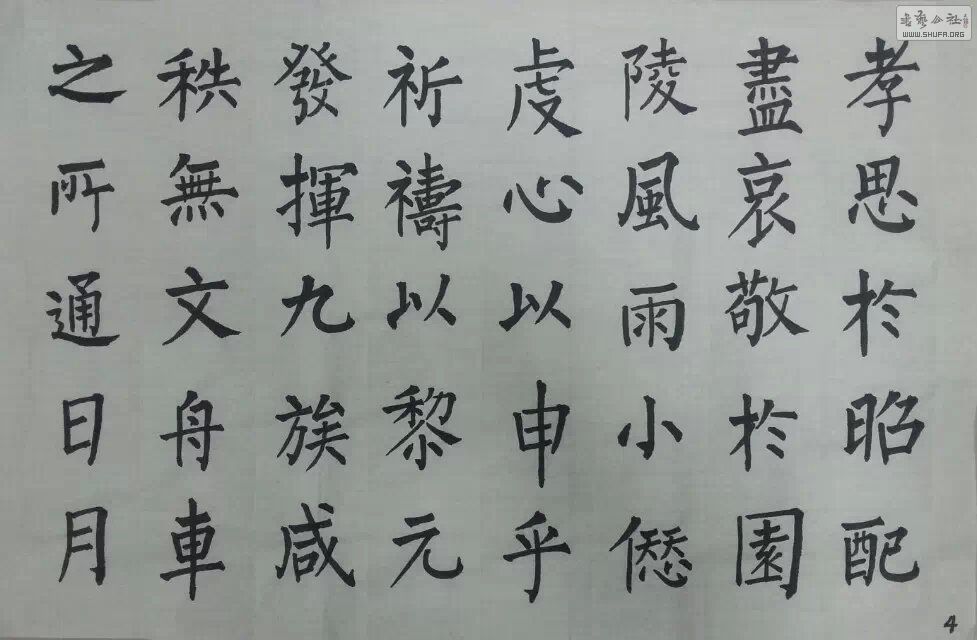 孝思於昭配
盡哀敬於園
陵風雨小僁
虔心以申乎
祈禱以黎元
發揮九族咸
秩無文舟車
之所通日月
4
书艺公社
WWW.SHUFA.ORG